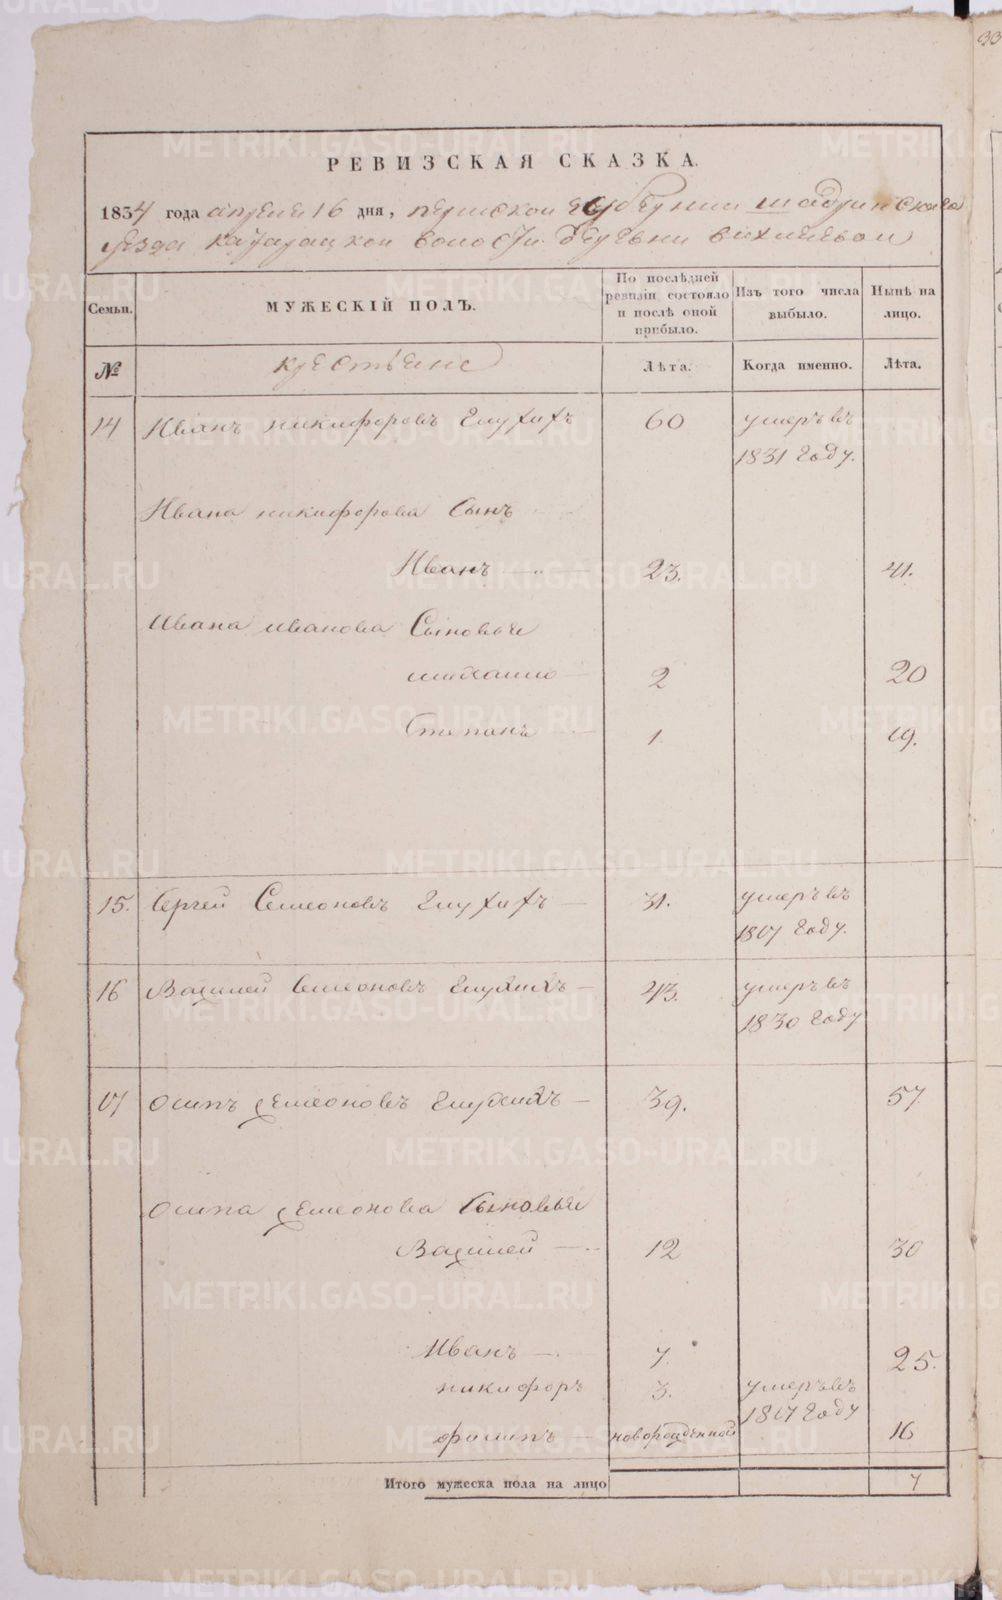 33
РЕВИЗСКАЯ СКАЗКА.
1834 года апреля 16 дня, пермской губернии шадринскаго
уезда катарацкой волости деревни
Семьи. МУЖЕСКІЙ ПОЛЪ. По послѣдней ревизіи состояло и послѣ оной прибыло. Изъ того числа выбыло. Нынѣ на лицо.
№ крестьяне Лѣта. Когда именно. Лѣта.
14 Иванъ никифоровъ Глухихъ 60 умеръ въ
1831 году.
Ивана никифорова Сынъ
Иванъ 23. 41.
Ивана иванова Сыновья
2 20
Степанъ 1 19.
15. Сергей Семеоновъ Глухихъ 31. умеръ въ
1817 году.
16 Василей Семеоновъ Глухихъ 43. умеръ въ
1830 году
17 осипъ семеоновъ Глухихъ 39. 57.
осипа семеонова Сыновья
Василей 12 30
Иванъ 7. 25.
никифоръ 3. умеръ въ
1817 году
новорожденной 16
Итого мужеска пола на лицо 7
METRIKI.GASO-URAL.RU